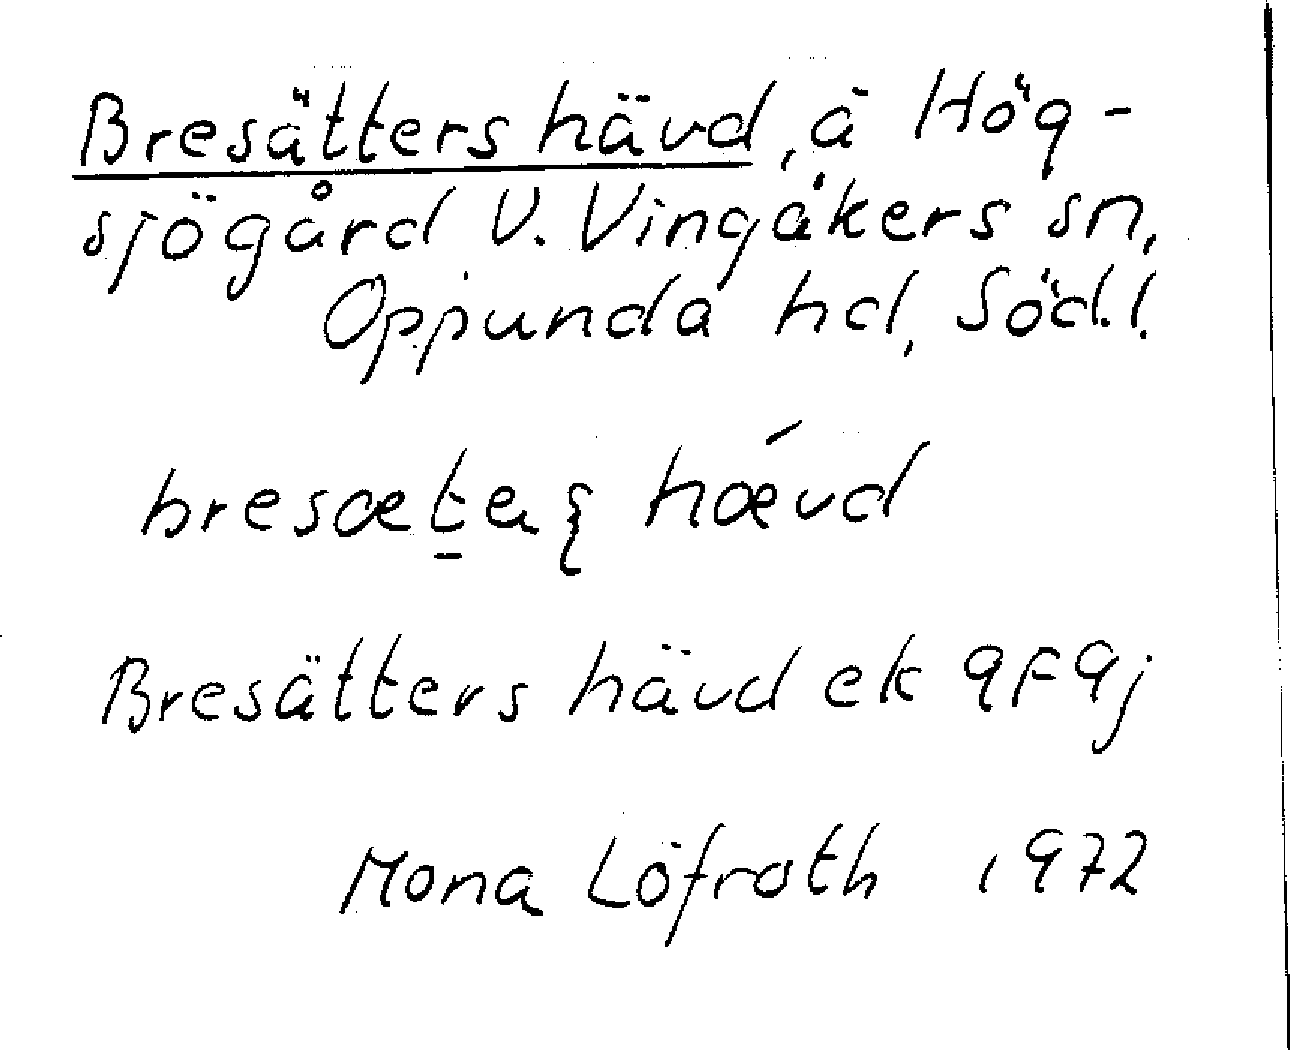 Bresätters hävd, å Hög-
sjögård V. Vingåkers sn,
Oppunda hd, Söd.l.
bresæteʂ hǽvd
Bresätters hävd ek 9F9j
Mona Löfroth 1972